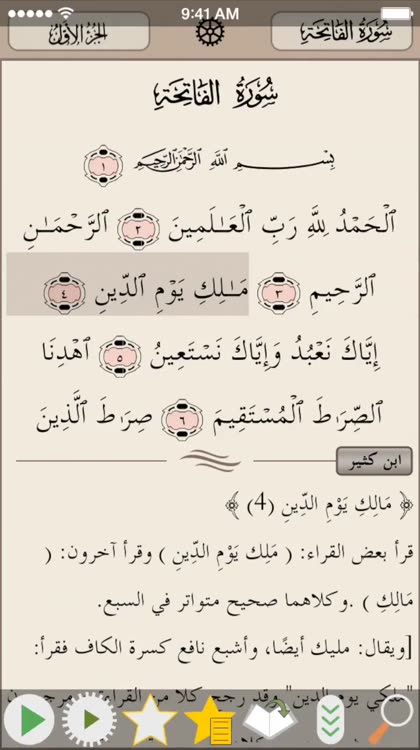 9:41 AM
سُورَةُ الفَاتِحَةِ
الجزء الأول
سُورَةُ الفَاتِحَةِ
بِسْمِ ٱللَّهِ ٱلرَّحْمَٰنِ ٱلرَّحِيمِ ١
ٱلْحَمْدُ لِلَّهِ رَبِّ ٱلْعَـٰلَمِينَ ٢ ٱلرَّحْمَـٰنِ
ٱلرَّحِيمِ ٣ مَـٰلِكِ يَوْمِ ٱلدِّينِ ٤
إِيَّاكَ نَعْبُدُ وَإِيَّاكَ نَسْتَعِينُ ٥ ٱهْدِنَا
ٱلصِّرَٰطَ ٱلْمُسْتَقِيمَ ٦ صِرَٰطَ ٱلَّذِينَ
ابن كثير
﴿ مَالِكِ يَوْمِ الدِّينِ (4) ﴾
قرأ بعض القراء: ( مَلِك يَوْمِ الدِّينِ ) وقرأ آخرون: (
مَالِكِ ) .وكلاهما صحيح متواتر في السبع.
[ويقال: مليك أيضًا، وأشبع نافع كسرة الكاف فقرأ:
"ملكي يوم الدين" وقد رجح كلا من القراءتين مرجحون